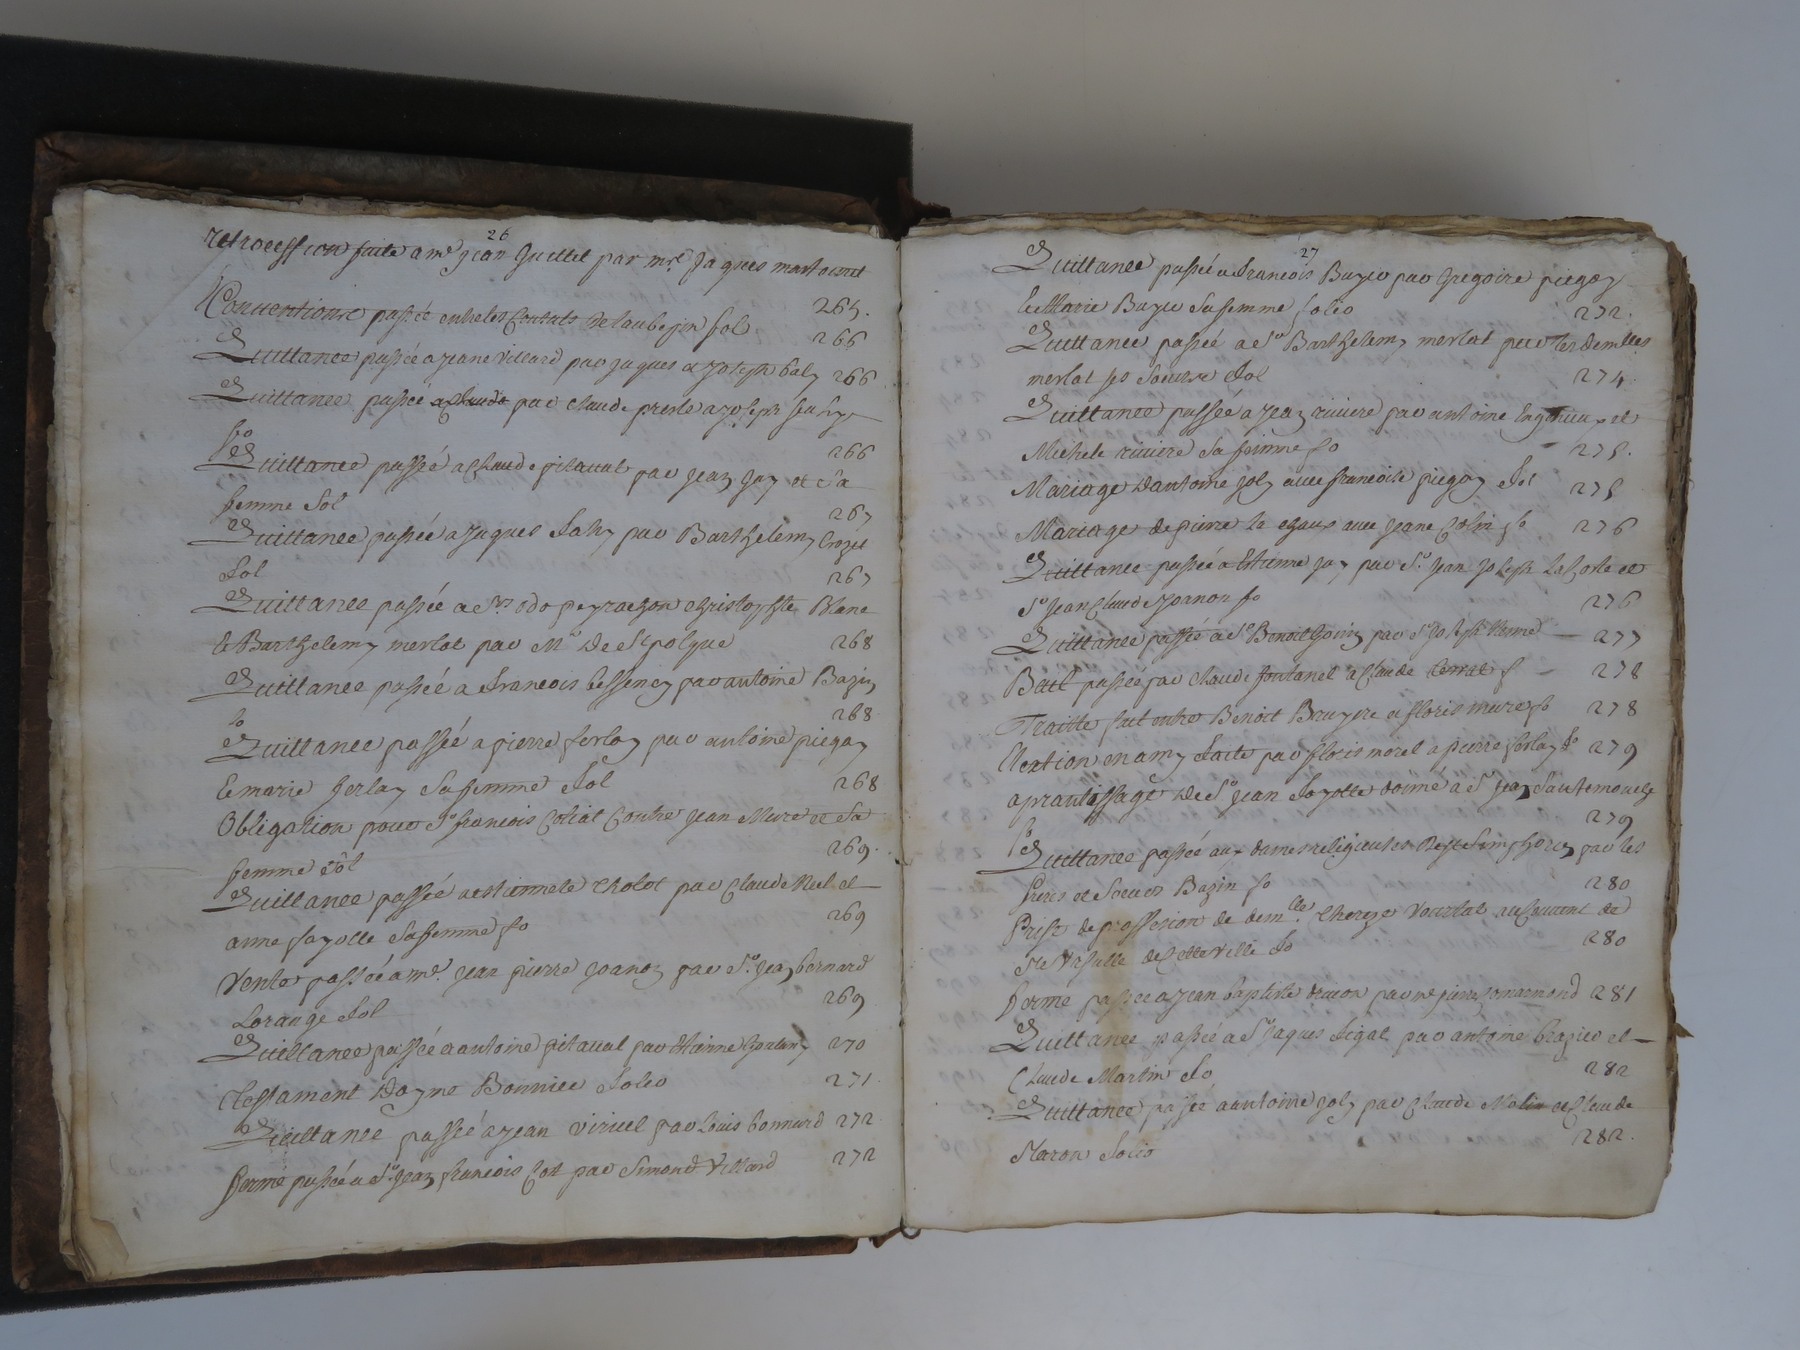 26
retrocession faite a me jean Guillet par mre jaques
265.
Conventions passée entre les Consuls de laubepin fol
266
Quittance passée a jeane Villard par jaques et joseph baly 266
Quittance passée a Claude par Claude presle a joseph
fo 266
Quittance passée a Claude pitaval par jean jay et Sa
femme fol 267
Quittance passée a jaques par Barthelemy Crozet
fol 267
Quittance passée a Srs odo peyrachon christophle Blanc
et Barthelemy merlat par Mr De St polque 268
Quittance passée a francois par antoine Bazin
fo 268
Quittance passée a pierre ferlay par antoine piegay
et marie ferlay Sa femme fol 268
Obligation pour Sr francois Coliat Contre jean Mure et Sa
femme fol 269.
Quittance passée a estiennete Cholot par Claude et
anne fayolle Sa femme fo 269
Vente passée a me jean pierre joanon par Sr jean bernard
Lorange fol 269
Quittance passée a antoine pitaval par Etienne 270
Testament Dayme Bonnier folio 271
Quittance passée a jean viricel par Louis bonnard 272
ferme passée a Sr jean francois Cot par Simond Villard 272
27
Quittance passée a francois Buyer par Gregoire piegay
et Marie Buyer Sa femme folio 272.
Quittance passée a Sr Barthelemy merlat par les demlles
merlat ses Soeurs fol 274.
Quittance passée a jean riviere par antoine et
Michele riviere Sa femme fo 275.
Mariage Dantoine joly avec francoise piegay fol 275
Mariage de pierre avec jeane Colin fo 276
Quittance passée a Etienne jay par Sr jean joseph et
Sr jean Claude jornon fo 276
Quittance passée a Sr Benoit Goin par Sr joseph 277
Bail passée par Claude fontanel a Claude f 278
Traitté fait entre Benoit Bruyere et floris mure fo 278
Election en amy faite par floris morel a pierre ferlay fo 279
aprantissage de Sr jean fayolle donné a Sr jean
fo 279
Quittance passée aux dames religieuses De St Simphorien par les
freres et Soeurs Bazin fo 280
Prise de possession de demlle Therese au Couvent de
Ste Ursulle de Cette Ville fo 280
ferme passée a jean baptiste par me pierre 281
Quittance passée a Sr jaques par antoine et
Claude Martin fo 282
Quittance passée a antoine joly par Claude et Claude
folio 282.